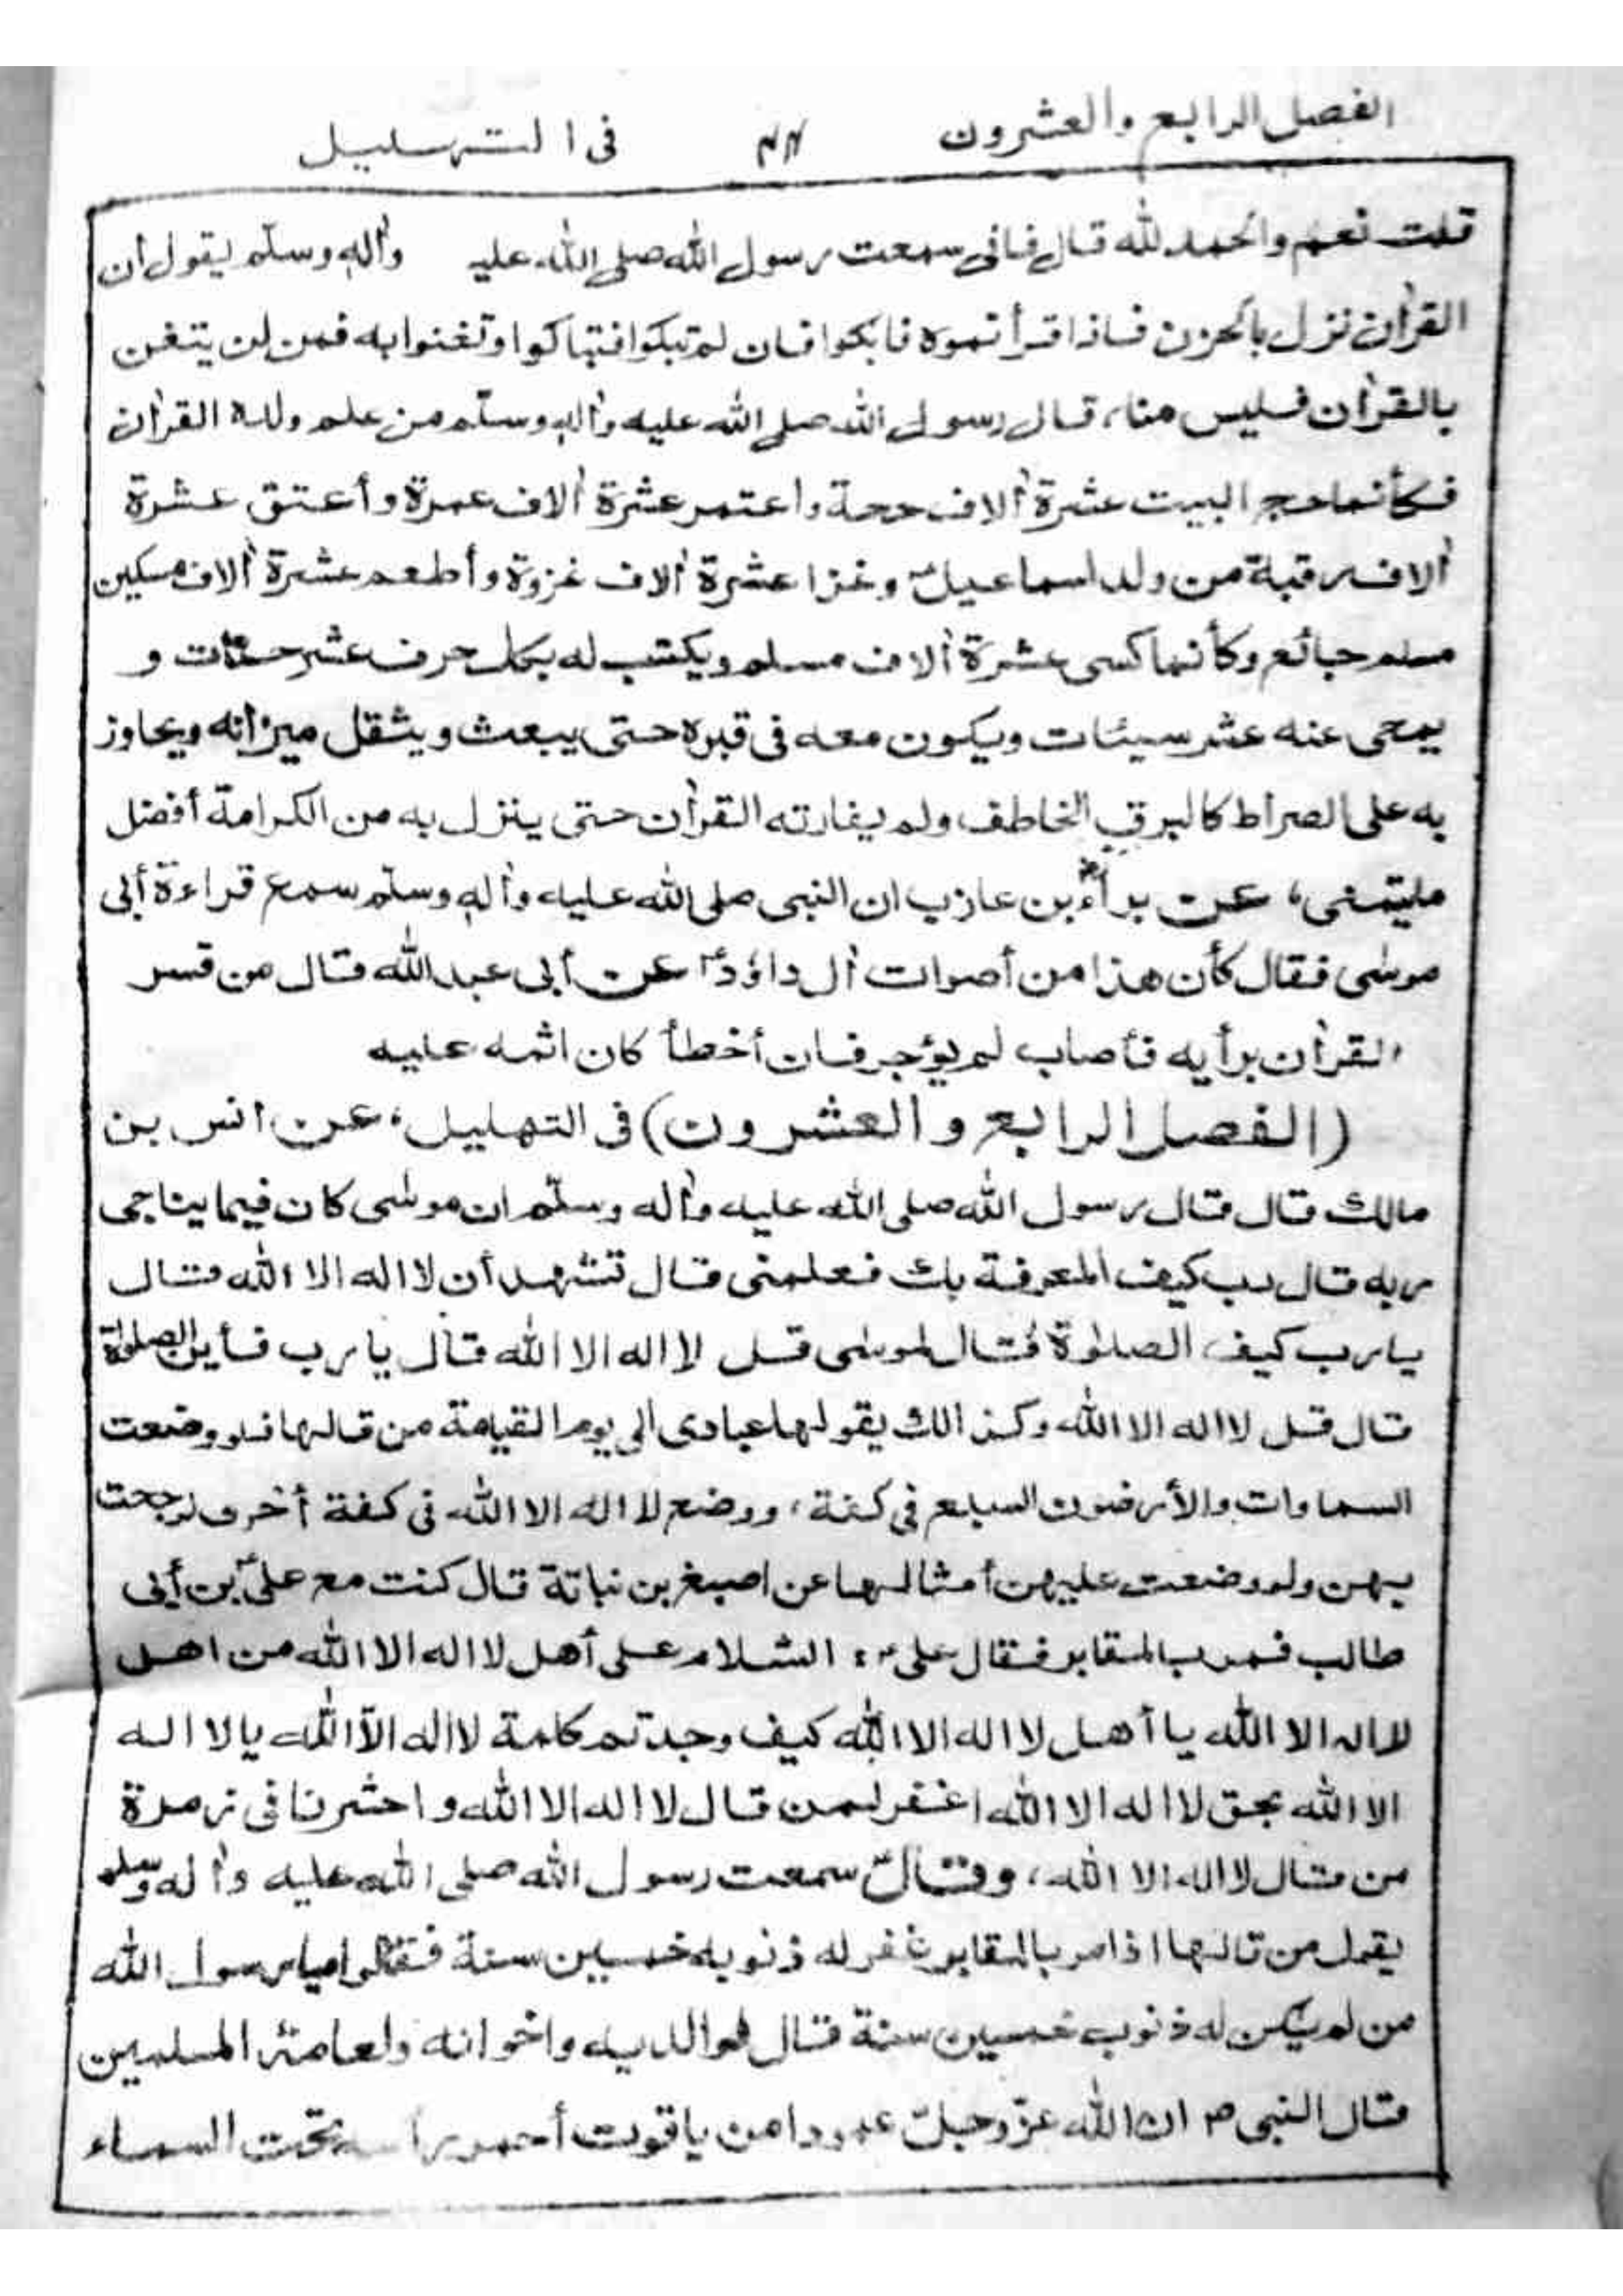 الفصل الرابع والعشرون
فى التهليل
قلت نعم والحمد لله قال فانى سمعت رسول الله صلى الله عليه وآله وسلم يقول أن
القرآن نزل بالحزن فاذا قرأتموه فابكوا فان لم تبكوا فتباكوا وتغنوا به فمن لن يتغن
بالقرآن فليس منا، قال رسول الله صلى الله عليه وآله وسلم من علم ولده القرآن
فكأنما حج البيت عشرة آلاف حجة واعتمر عشرة آلاف عمرة وأعتق عشرة
آلاف رقبة من ولد اسماعيل وغزا عشرة آلاف غزوة وأطعم عشرة آلاف مسكين
مسلم جائع وكأنما كسى عشرة آلاف مسلم ويكتب له بكل حرف عشر حسنات و
يمحى عنه عشر سيئات ويكون معه فى قبره حتى يبعث ويثقل ميزانه ويجاوز
به على الصراط كالبرق الخاطف ولم يفارقه القرآن حتى ينزل به من الكرامة أفضل
مايتمنى، عن براء بن عازب ان النبى صلى الله عليه وآله وسلم سمع قراءة أبى
موسى فقال كأن هذا من أصوات آل داؤد عن أبى عبد الله قال من فسر
القرآن برأيه فأصاب لم يؤجر فان أخطأ كان اثمه عليه
(الفصل الرابع والعشرون) فى التهليل، عن انس بن
مالك قال قال رسول الله صلى الله عليه وآله وسلم ان موسى كان فيما يناجى
ربه قال رب كيف المعرفة بك فعلمنى قال تشهد أن لا اله الا الله قال
يارب كيف الصلوة فقال لموسى قل لا اله الا الله قال يارب فأين الصلوة
قال قل لا اله الا الله وكذالك يقولها عبادى الى يوم القيامة من قالها فلو وضعت
السماوات والأرضون السبع فى كفة، ووضع لا اله الا الله فى كفة أخرى لرجحت
بهن ولو وضعت عليهن أمثالها عن اصبغ بن نباتة قال كنت مع على بن أبى
طالب فمر بالمقابر فقال على ؑ: السلام على أهل لا اله الا الله من اهل
لا اله الا الله يا أهل لا اله الا الله كيف وجدتم كلمة لا اله الا الله يا لا اله
الا الله بحق لا اله الا الله اغفر لمن قال لا اله الا الله واحشرنا فى زمرة
من قال لا اله الا الله، وقال سمعت رسول الله صلى الله عليه وآله وسلم
يقول من قالها اذا مر بالمقابر غفر له ذنوبه خمسين سنة فقالوا يا رسول الله
من لم يكن له ذنوب خمسين سنة قال لوالديه واخوانه ولعامة المسلمين
قال النبى ص ان الله عز وجل عمودا من ياقوت أحمر رأسه تحت السماء